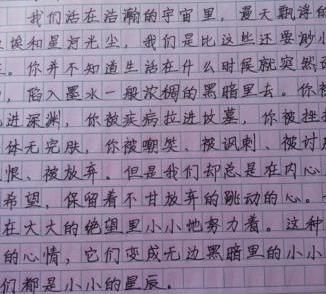 我们活在浩瀚的宇宙里，漫天飘浮的
埃和星河光尘，我们是比这些还要渺小
你并不知道生活在什么时候就突然
，陷入墨水一般浓稠的黑暗里去。你被
进深渊，你被疾病拉进坟墓，你被挫
体无完肤，你被嘲笑、被讽刺、被讨
恨、被放弃。但是我们却总是在内心
希望，保留着不甘放弃的跳动的心。
在大大的绝望里小小地努力着。这种
的心情，它们变成无边黑暗里的小小
们都是小小的星辰。